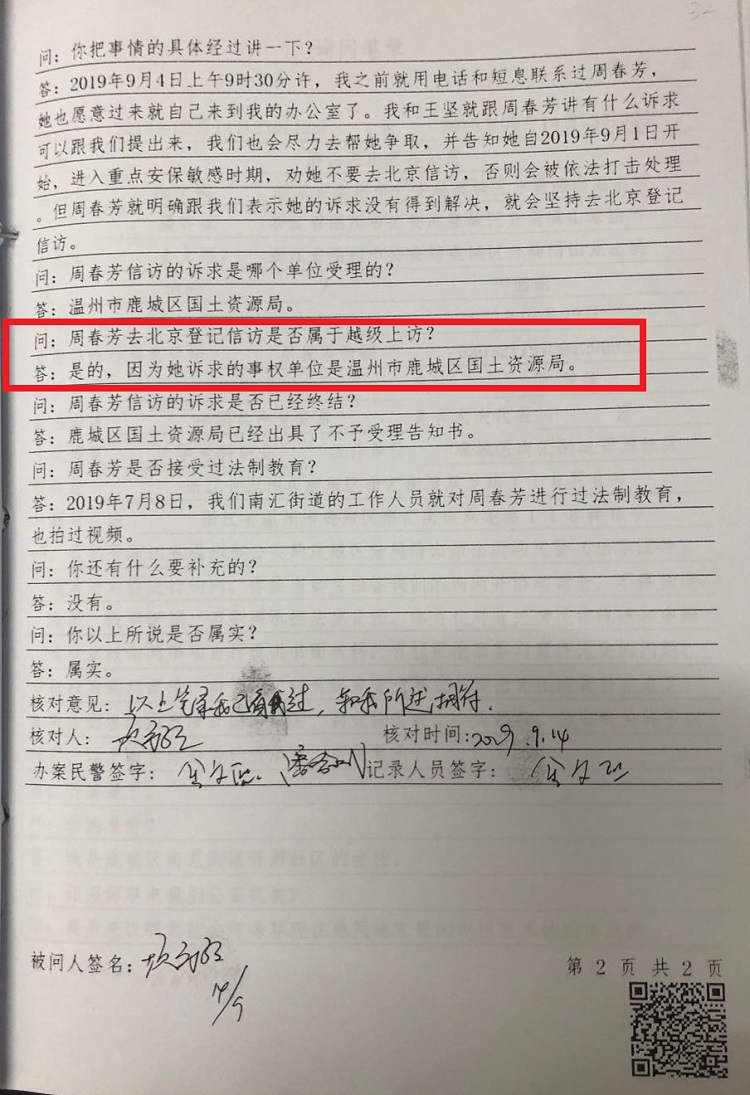 问：你把事情的具体经过讲一下？
答：2019年9月4日上午9时30分许，我之前就用电话和短息联系过周春芳，
她也愿意过来就自己来到我的办公室了。我和王坚就跟周春芳讲有什么诉求
可以跟我们提出来，我们也会尽力去帮她争取，并告知她自2019年9月1日开
始，进入重点安保敏感时期，劝她不要去北京信访，否则会被依法打击处理
。但周春芳就明确跟我们表示她的诉求没有得到解决，就会坚持去北京登记
信访。
问：周春芳信访的诉求是哪个单位受理的？
答：温州市鹿城区国土资源局。
问：周春芳去北京登记信访是否属于越级上访？
答：是的，因为她诉求的事权单位是温州市鹿城区国土资源局。
问：周春芳信访的诉求是否已经终结？
答：鹿城区国土资源局已经出具了不予受理告知书。
问：周春芳是否接受过法制教育？
答：2019年7月8日，我们南汇街道的工作人员就对周春芳进行过法制教育，
也拍过视频。
问：你还有什么要补充的？
答：没有。
问：你以上所说是否属实？
答：属实。
核对意见：以上笔录我已看过，和我所述相符.
核对人： 核对时间:2019.9.14
办案民警签字： 记录人员签字：
被问人签名：
14/9
第 2 页 共 2 页